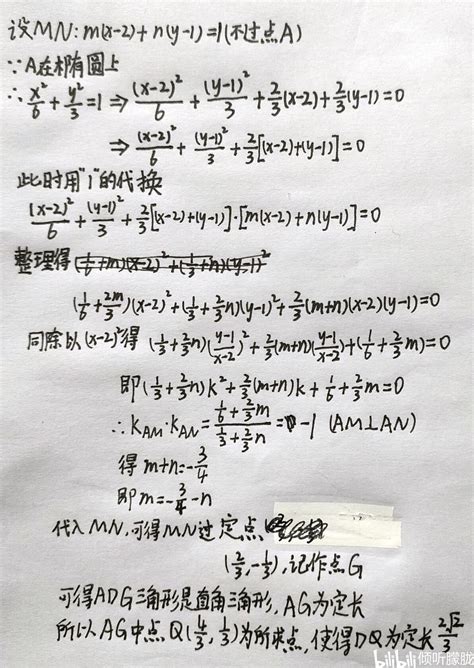 设MN: m(x-2)+n(y-1)=1(不过点A)
∵A在椭圆上
∴x²/6+y²/3=1 ⇒ (x-2)²/6+(y-1)²/3+2/3(x-2)+2/3(y-1)=0
⇒ (x-2)²/6+(y-1)²/3+2/3[(x-2)+(y-1)]=0
此时用"1"的代换
(x-2)²/6+(y-1)²/3+2/3[(x-2)+(y-1)]·[m(x-2)+n(y-1)]=0
整理得(1/6+m)(x-2)²+(1/3+n)(y-1)²
(1/6+2m/3)(x-2)²+(1/3+2/3n)(y-1)²+2/3(m+n)(x-2)(y-1)=0
同除以(x-2)²得 (1/3+2/3n)(y-1/x-2)²+2/3(m+n)(y-1/x-2)+(1/6+2/3m)=0
即(1/3+2/3n)k²+2/3(m+n)k+1/6+2/3m=0
∴kAM·kAN=(1/6+2/3m)/(1/3+2/3n)=-1 (AM⊥AN)
得 m+n=-3/4
即m=-3/4-n
代入MN,可得MN过定点
(2/3,-1/3),记作点G
可得ADG三角形是直角三角形,AG为定长
所以AG中点Q(4/3,1/3)为所求点,使得DQ为定长2√2/3
bilibili 倾听朦胧